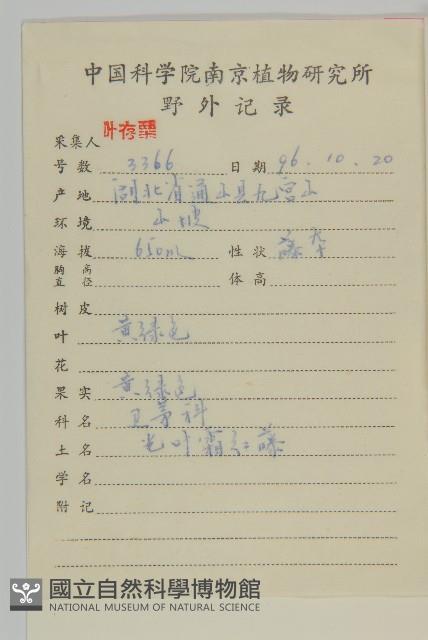 中国科学院南京植物研究所
野外记录
采集人 叶存粟
号数 3366 日期 96.10.20
产地 湖北省通山县九宫山
环境 山坡
海拔 650m 性状 藤本
胸高直径 体高
树皮
叶 黄绿色
花
果实 黄绿色
科名 卫茅科
土名 光叶霜红藤
学名
附记
國立自然科學博物館
NATIONAL MUSEUM OF NATURAL SCIENCE